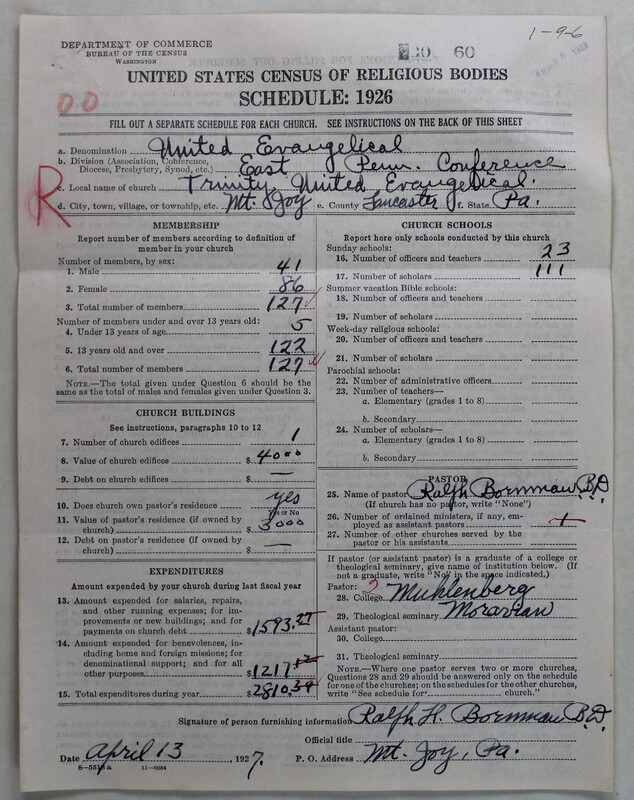 1-9-6
DEPARTMENT OF COMMERCE
BUREAU OF THE CENSUS
WASHINGTON
30 60
UNITED STATES CENSUS OF RELIGIOUS BODIES
SCHEDULE: 1926
00
FILL OUT A SEPARATE SCHEDULE FOR EACH CHURCH. SEE INSTRUCTIONS ON THE BACK OF THIS SHEET
R
a. Denomination United Evangelical
b. Division (Association, Conference, Diocese, Presbytery, Synod, etc.) East Penn. Conference
c. Local name of church Trinity United Evangelical.
d. City, town, village, or township, etc. Mt. Joy e. County Lancaster f. State Pa.
MEMBERSHIP
Report number of members according to definition of
member in your church
Number of members, by sex:
1. Male 41
2. Female 86
3. Total number of members 127
Number of members under and over 13 years old:
4. Under 13 years of age 5
5. 13 years old and over 122
6. Total number of members 127
NOTE.—The total given under Question 6 should be
the same as the total of males and females given under Question 3.
CHURCH BUILDINGS
See instructions, paragraphs 10 to 12
7. Number of church edifices 1
8. Value of church edifices $ 4000
9. Debt on church edifices $ —
10. Does church own pastor's residence? yes
Yes or No
11. Value of pastor's residence (if owned by
church) $ 3000
12. Debt on pastor's residence (if owned by
church) $ —
EXPENDITURES
Amount expended by your church during last fiscal year
13. Amount expended for salaries, repairs,
and other running expenses; for im-
provements or new buildings; and for
payments on church debt $ 1593.27
14. Amount expended for benevolences,
including home and foreign missions; for
denominational support; and for all
other purposes $ 1217.12
15. Total expenditures during year $ 2810.39
CHURCH SCHOOLS
Report here only schools conducted by this church
Sunday schools:
16. Number of officers and teachers 23
17. Number of scholars 111
Summer vacation Bible schools:
18. Number of officers and teachers
19. Number of scholars
Week-day religious schools:
20. Number of officers and teachers
21. Number of scholars
Parochial schools:
22. Number of administrative officers
23. Number of teachers—
a. Elementary (grades 1 to 8)
b. Secondary
24. Number of scholars—
a. Elementary (grades 1 to 8)
b. Secondary
PASTOR
25. Name of pastor Ralph Bornman B.D.
(If church has no pastor, write "None")
26. Number of ordained ministers, if any, em-
ployed as assistant pastors 1
27. Number of other churches served by the
pastor or his assistants
If pastor (or assistant pastor) is a graduate of a college or
theological seminary, give name of institution below. (If
not a graduate, write "No" in the space indicated.)
Pastor: 2
28. College Muhlenberg
29. Theological seminary Moravian
Assistant pastor:
30. College
31. Theological seminary
NOTE.—Where one pastor serves two or more churches,
Questions 28 and 29 should be answered only on the schedule
for one of the churches; on the schedules for the other churches,
write "See schedule for church."
Signature of person furnishing information Ralph H. Bornman B.D.
Official title
Date April 13, 1927. P. O. Address Mt. Joy, Pa.
8-5513a 11-9054